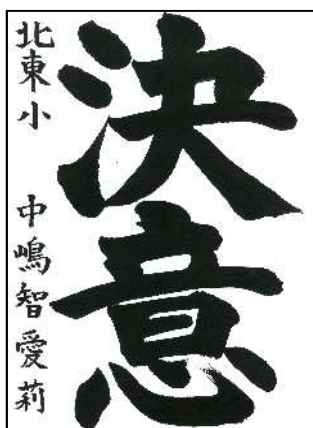 決意
北東小 中嶋智愛莉